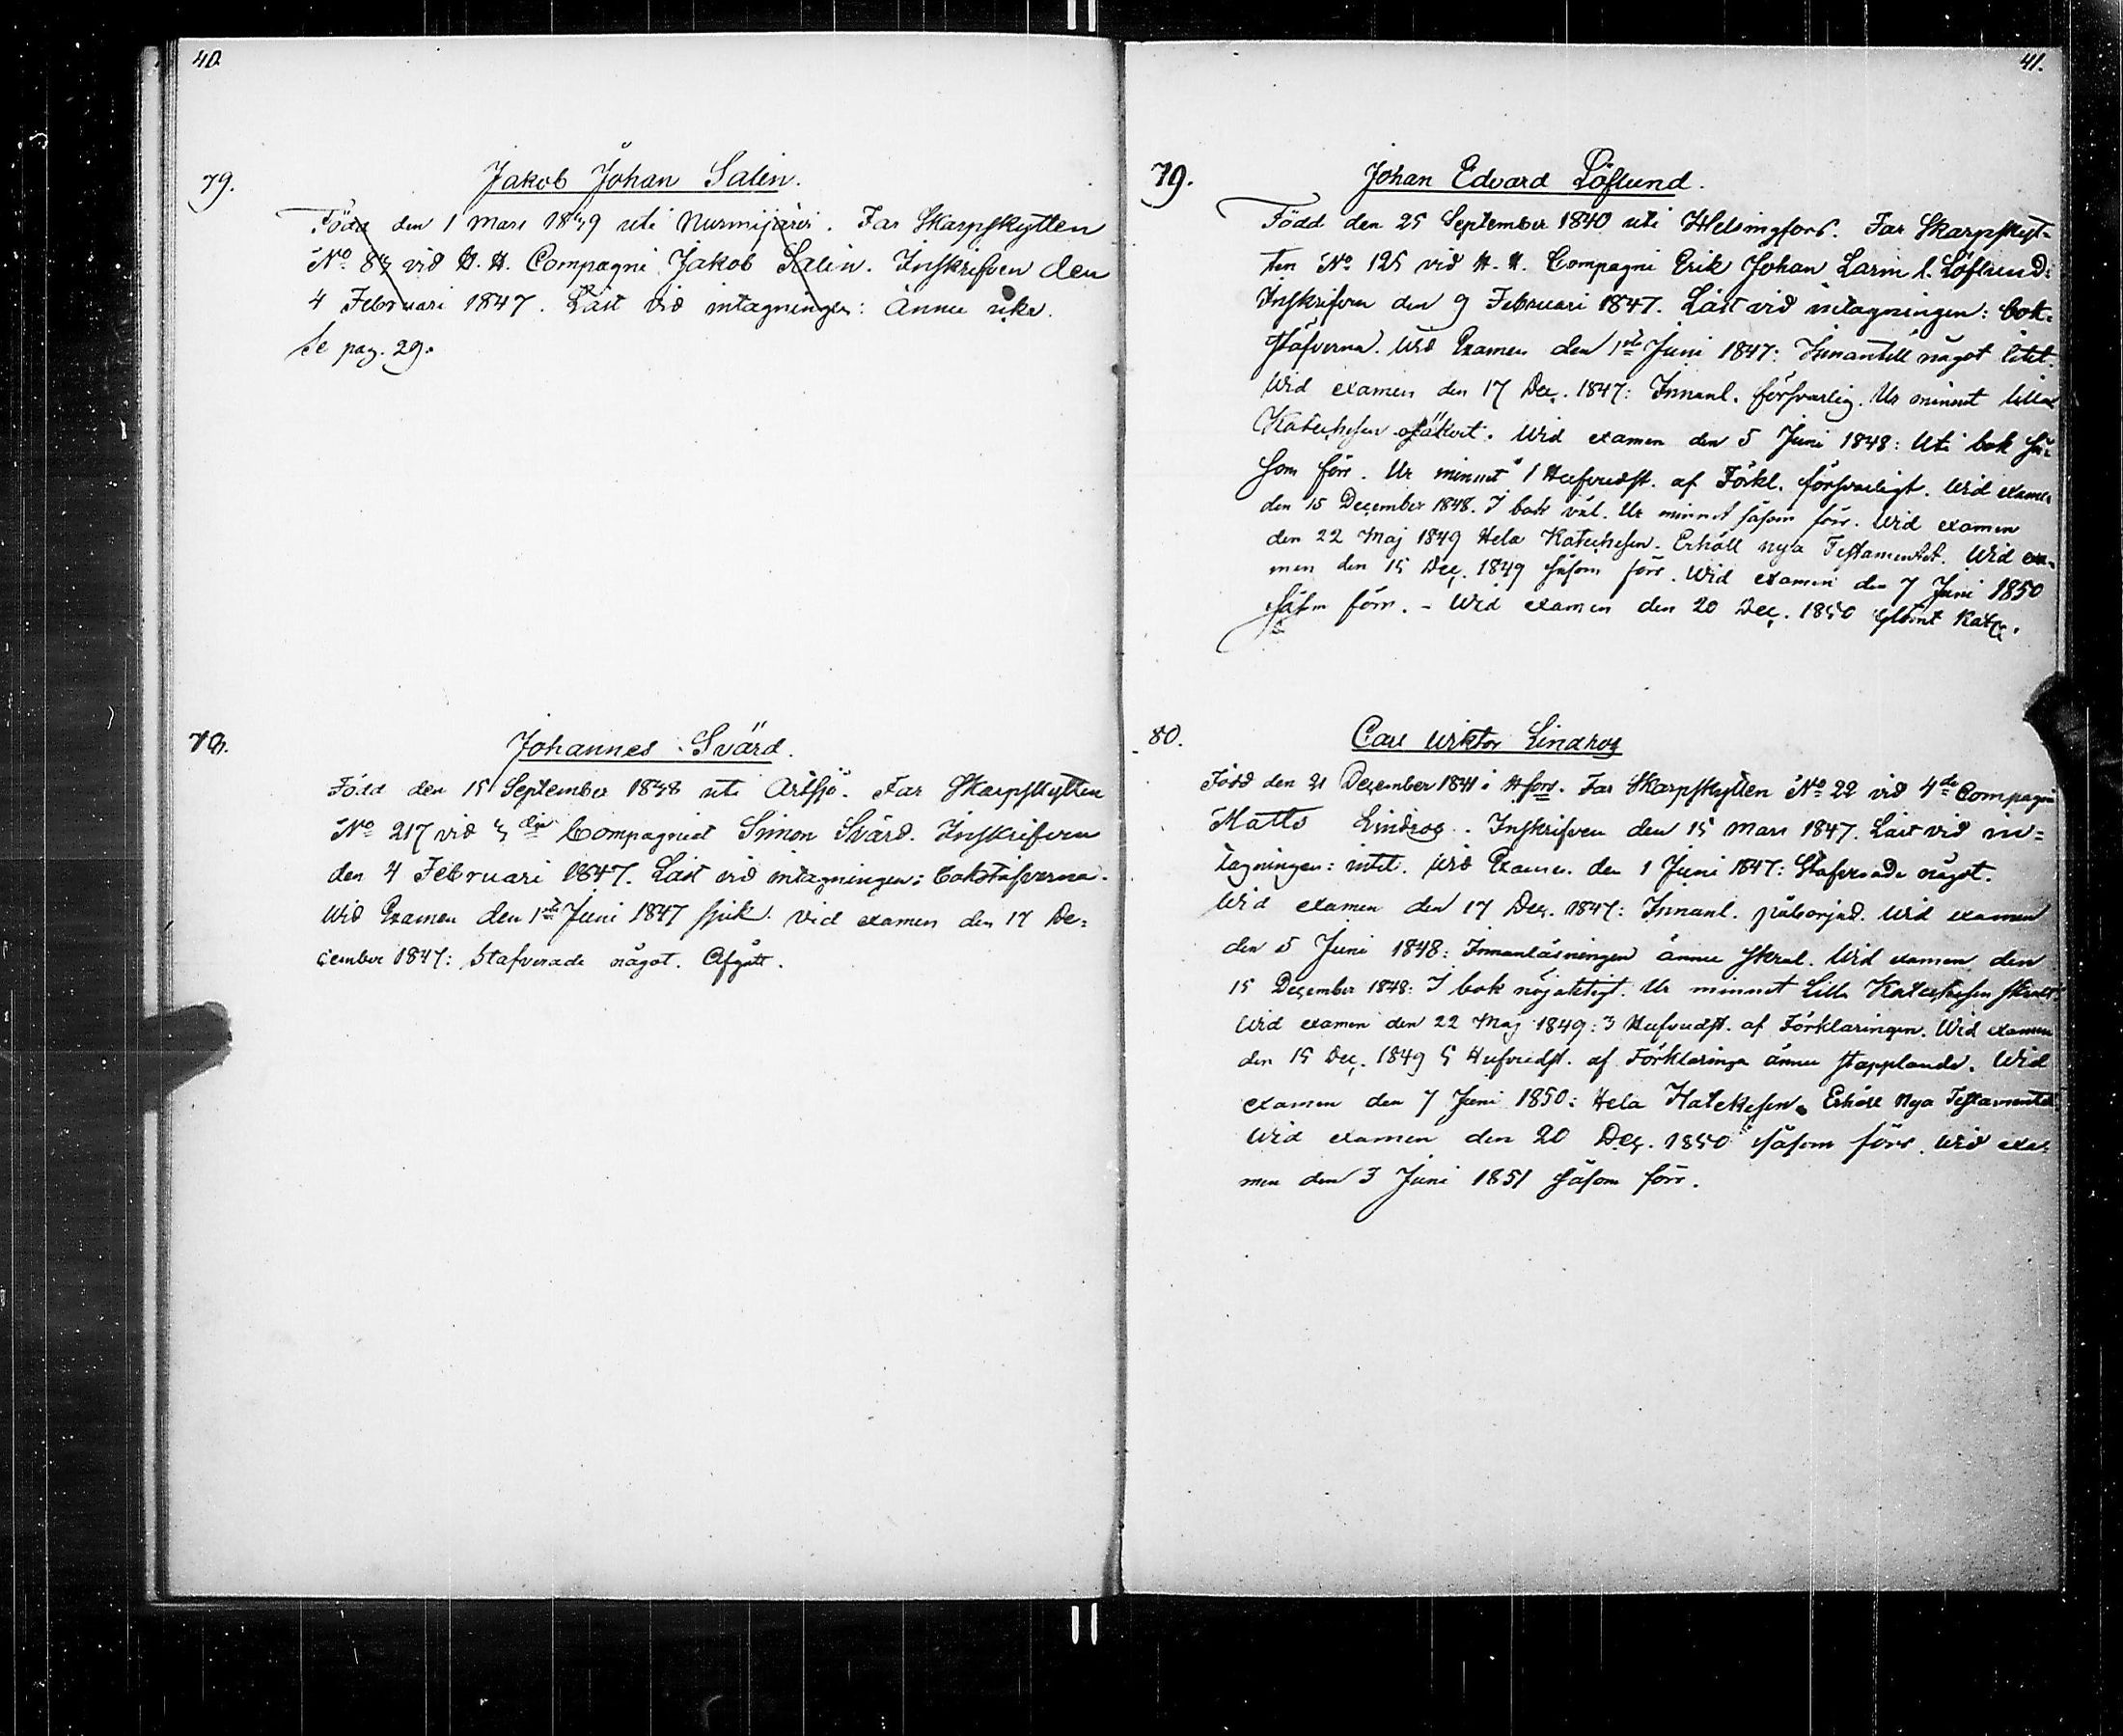 40.
79.
Jakob Johan Salin.
Född den 1 Mars 1839 uti Nurmijärvi. Far Skarpskytten
No 87 vid H. H. Compagni Jakob Salin. Inskrifven den
4 Februari 1847. Läst vid intagningen: Ännu icke.
Se pag. 29.
78.
Johannes Svärd.
Född den 15 September 1838 uti Artsjö. Far Skarpskytten
No 217 vid Compagniet Simon Svärd. Inskrifven
den 4 Februari 1847. Läst vid intagningen: Bokstäfverna.
Wid Examen den 1sta Juni 1847 sjuk. Vid examen den 17 De=
cember 1847: Stafverade något. Afgått.
41.
79.
Johan Edvard Löflund.
Född den 25 September 1840 uti Helsingfors. Far Skarpskyt=
ten No 125 vid H. H. Compagni Erik Johan Larin l. Löflund:
Inskrifven den 9 Februari 1847. Läst vid intagningen: bok=
stäfverna. Wid Examen den 1sta Juni 1847: Innantill något litet.
Wid examen den 17 Dec. 1847: Innanl. försvarlig. Ur minnet lilla
Katechesen osäkert. Wid examen den 5 Juni 1848: Uti bok så=
som förr. Ur minnet 1 Hufvudst. af Förkl. försvarligt. Wid examen
den 15 December 1848. I bok väl. Ur minnet såsom förr. Wid examen
den 22 Maj 1849 Hela Katechesen. Erhöll nya Testamentet. Wid exa=
men den 15 Dec. 1849 såsom förr. Wid examen den 7 Juni 1850
såsom förr. - Wid examen den 20 Dec. 1850 glömt Katec.
80.
Carl Wiktor Lindrog
Född den 21 December 1841 i Hfors. Far Skarpskytten No 22 vid 4de Compagni
Matts Lindrog. Inskrifven den 15 Mars 1847. Läst vid in=
tagningen: intet. Wid Examen den 1 Juni 1847: Stafverade något.
Wid examen den 17 Dec. 1847: Innanl. påbörjad. Wid examen
den 5 Juni 1848: Innanläsningen ännu skral. Wid examen den
15 December 1848: I bok nöjaktigt. Ur minnet Lilla Katechesen skralt.
Wid examen den 22 Maj 1849: 3 Hufvudst. af Förklaringen. Wid examen
den 15 Dec. 1849 5 Hufvudst. af Förklaringen ännu stapplande. Wid
examen den 7 Juni 1850: Hela Katekesen. Erhöll Nya Testamentet
Wid examen den 20 Dec. 1850 såsom förr. Wid exa=
men den 3 Juni 1851 såsom förr.